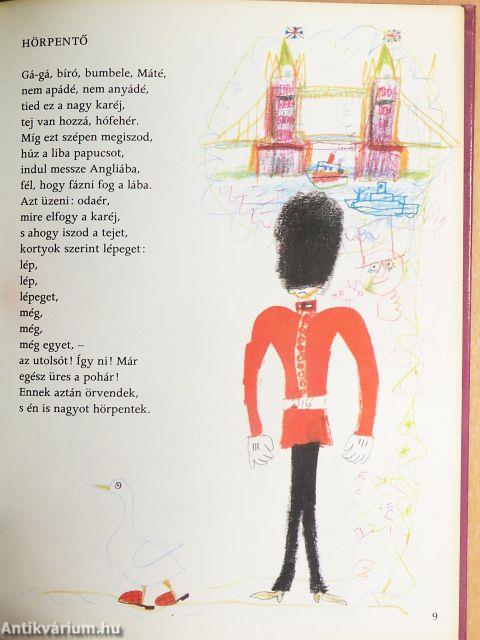 HÖRPENTŐ
Gá-gá, bíró, bumbele, Máté,
nem apádé, nem anyádé,
tied ez a nagy karéj,
tej van hozzá, hófehér.
Míg ezt szépen megiszod,
húz a liba papucsot,
indul messze Angliába,
fél, hogy fázni fog a lába.
Azt üzeni: odaér,
mire elfogy a karéj,
s ahogy iszod a tejet,
kortyok szerint lépeget:
lép,
lép,
lépeget,
még,
még,
még egyet, –
az utolsót! Így ni! Már
egész üres a pohár!
Ennek aztán örvendek,
s én is nagyot hörpentek.
9
Antikvárium.hu